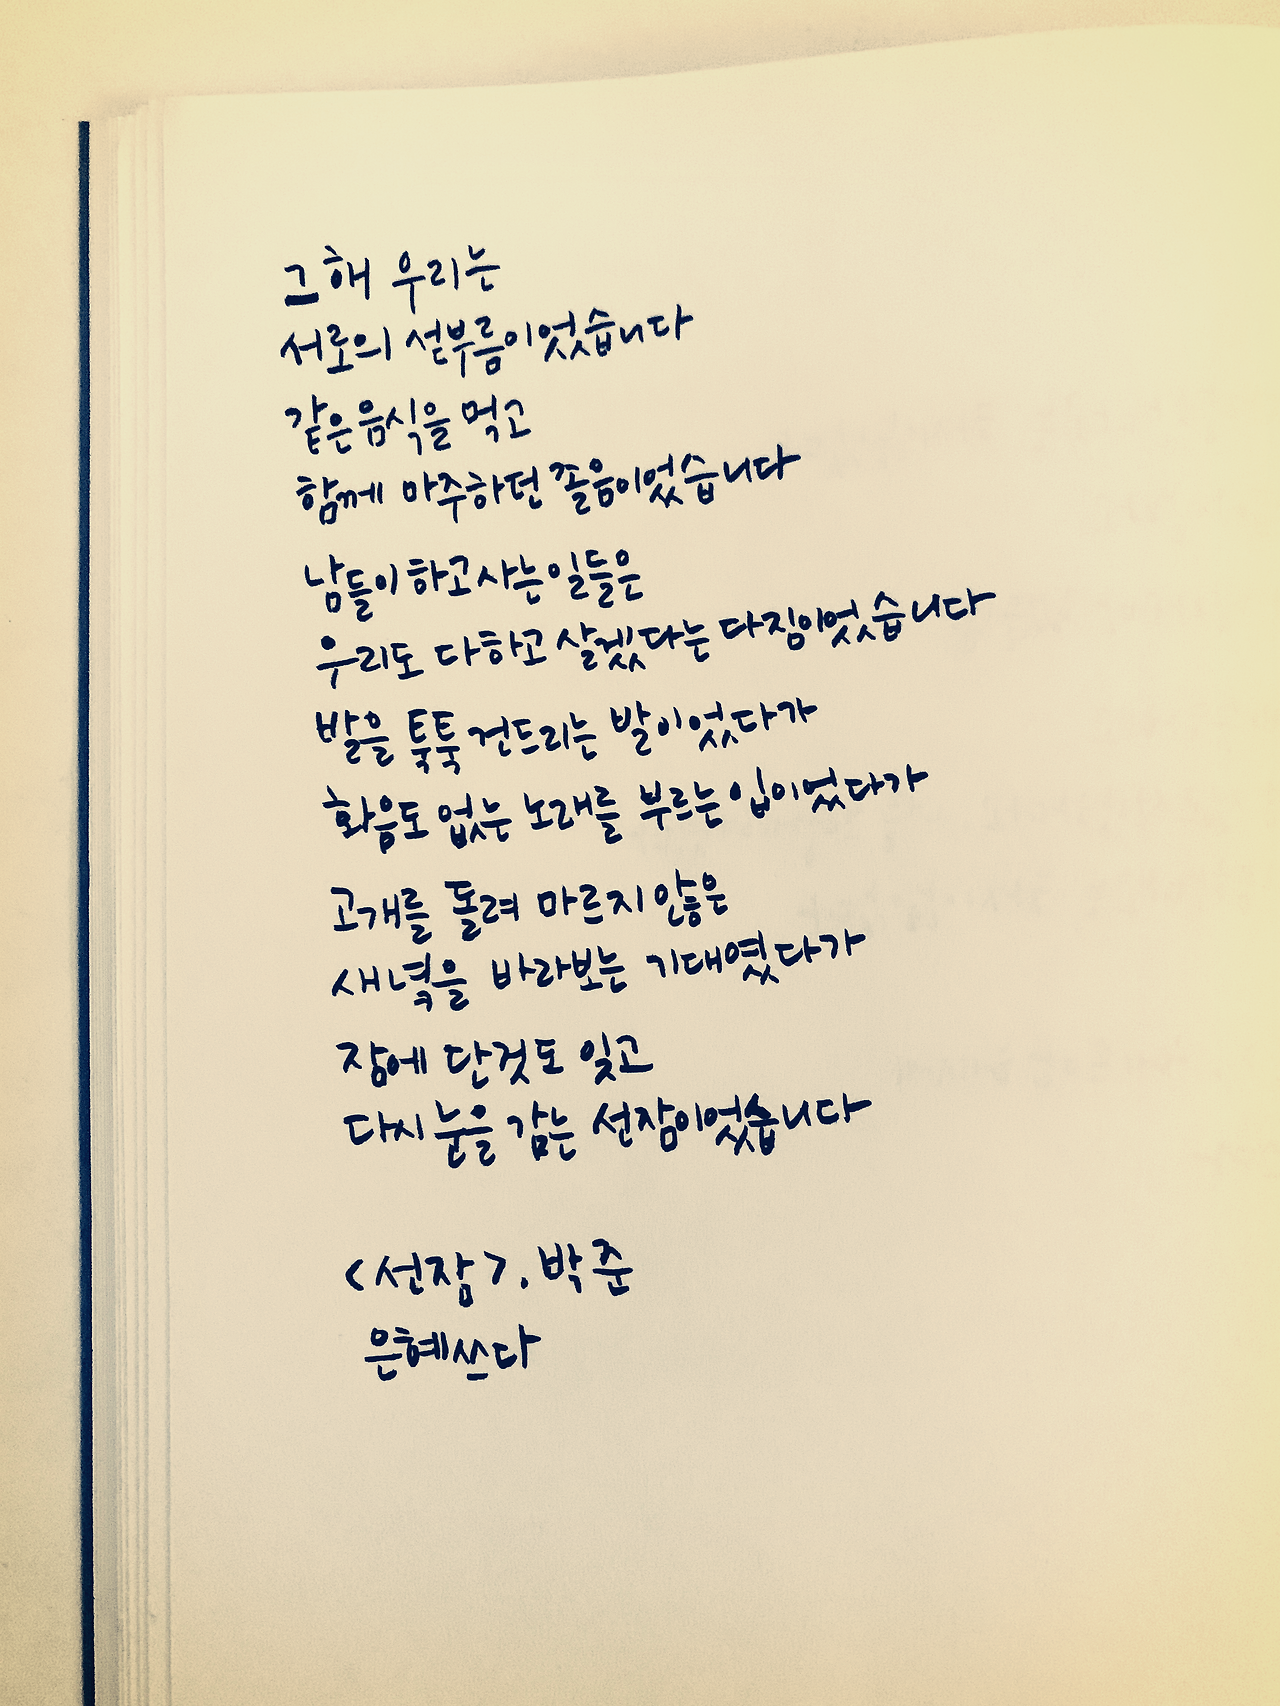 그해 우리는
서로의 섣부름이었습니다
같은 음식을 먹고
함께 마주하던 졸음이었습니다
남들이 하고 사는 일들은
우리도 다 하고 살겠다는 다짐이었습니다
발을 툭툭 건드리는 발이었다가
화음도 없는 노래를 부르는 입이었다가
고개를 돌려 마르지 않은
새녘을 바라보는 기대였다가
잠에 단것도 잊고
다시 눈을 감는 선잠이었습니다
<선잠>. 박준
은혜쓰다